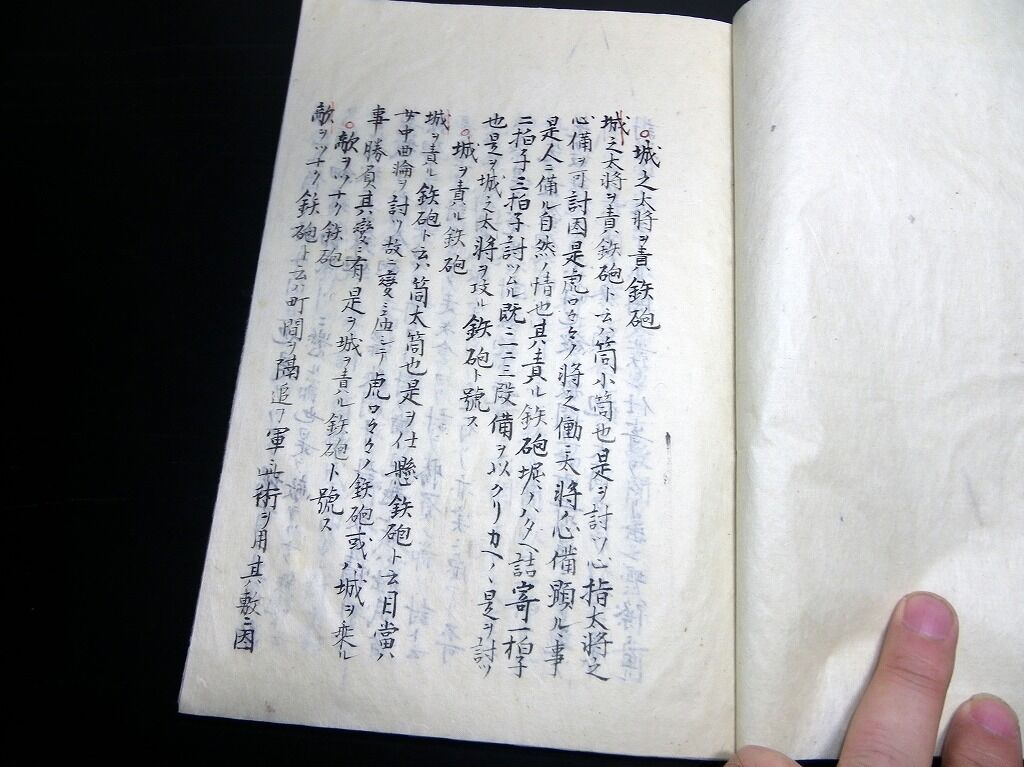 城之太将ヲ責ル鉄砲
城之太将ヲ責ル鉄砲ト云ハ筒小筒也是ヲ討ツ心指太将之
心備ヲ可討因是虎口々々ノ将之働ニ太将ノ心備顕ルヽ事
是人ニ備ル自然ノ情也其責ル鉄砲堀ノハタヘ詰寄一拍子
二拍子三拍子討ツムル既ニ二三段備ヲ以クリカヘヽ是ヲ討ツ
也是ヲ城之太将ヲ攻ル鉄砲ト號ス
城ヲ責ル鉄砲
城ヲ責ル鉄砲ト云ハ筒太筒也是ヲ仕懸鉄砲ト云目當ハ
女中曲淪ヲ討ツ故ニ変ニ虎口々々ノ鉄砲或ハ城ヲ乗ル
事勝負其変ニ有是ヲ城ヲ責ル鉄砲ト號ス
敵ヲツナク鉄砲
敵ヲツナク鉄砲ト云ハ町間ヲ隔追ヲ軍術ヲ用其敷ニ因